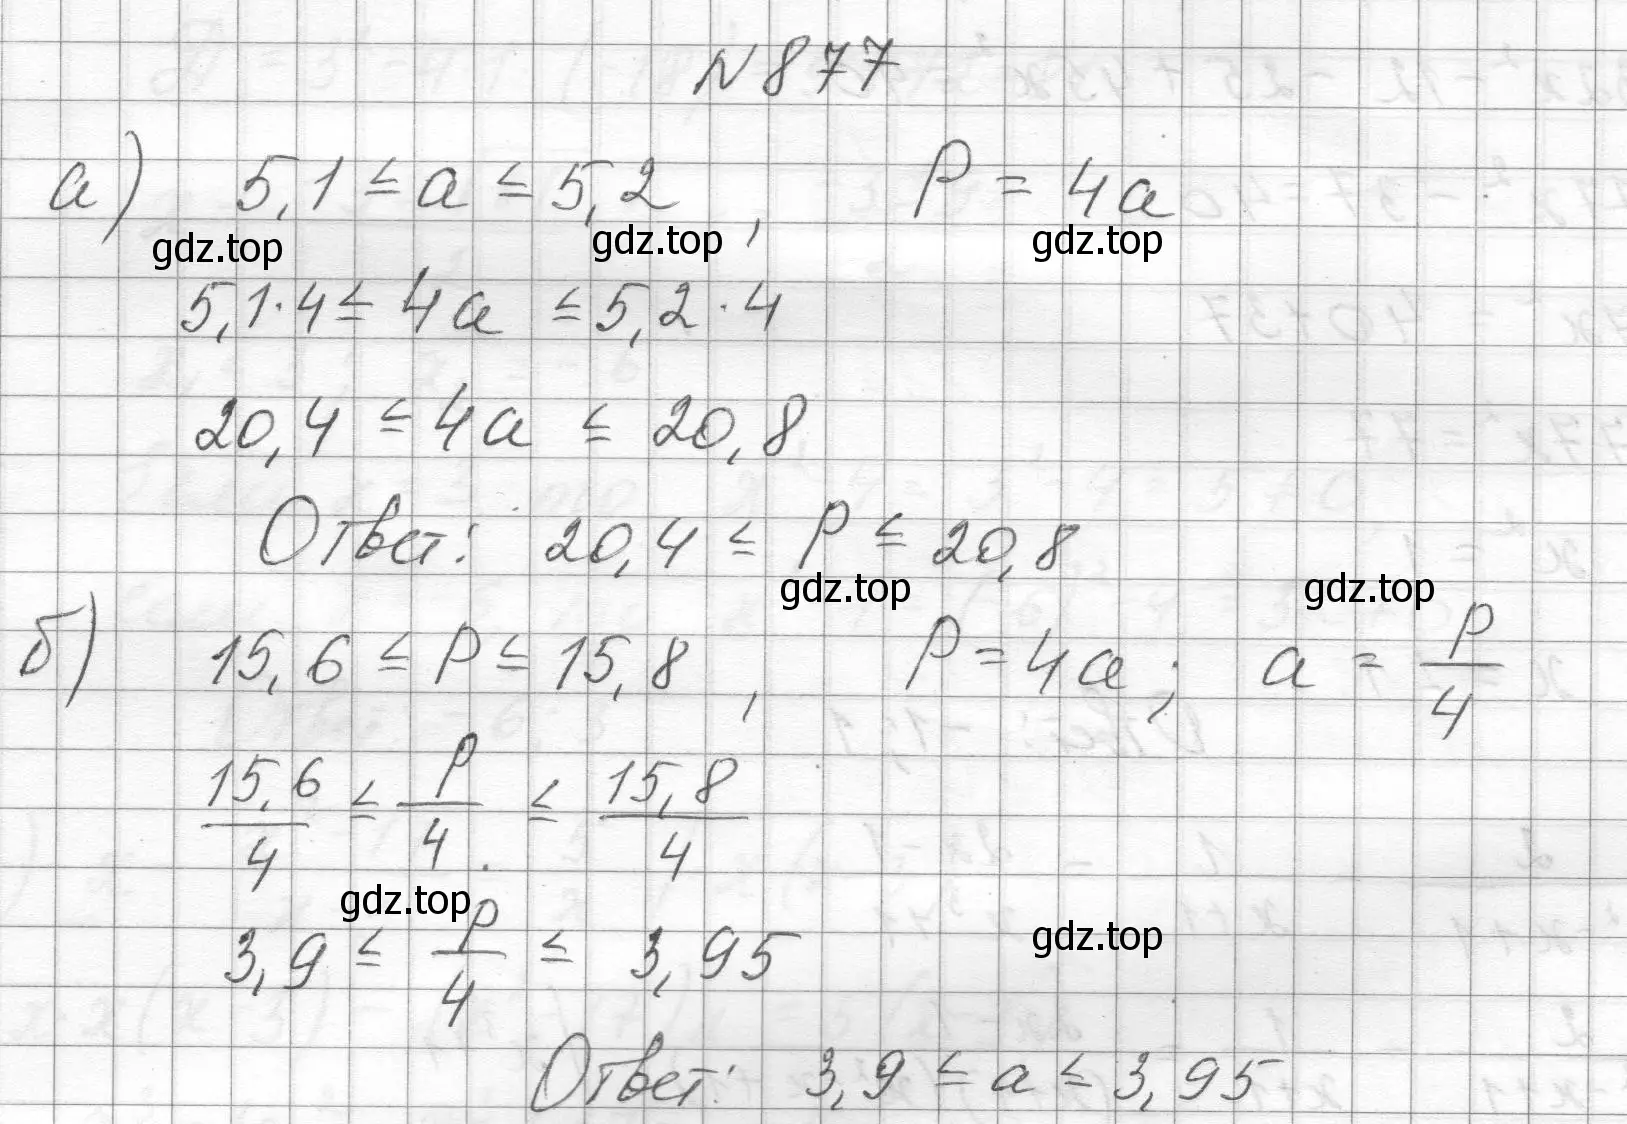 N877
а) 5,1 ≤ a ≤ 5,2 , P = 4a
gdz.top gdz.top gdz.top
5,1·4 ≤ 4a ≤ 5,2·4
20,4 ≤ 4a ≤ 20,8
Ответ: 20,4 ≤ P ≤ 20,8
gdz.top gdz.top
б) 15,6 ≤ P ≤ 15,8 , P = 4a; a = P/4
15,6/4 ≤ P/4 ≤ 15,8/4
gdz.top gdz.top
3,9 ≤ P/4 ≤ 3,95
Ответ: 3,9 ≤ a ≤ 3,95